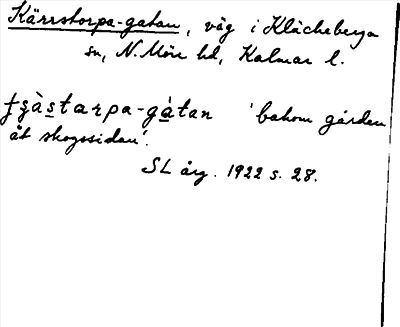 Kärrstorpa-gatan, väg i Kläckeberga
sn, N. Möre hd, Kalmar l.
ʈʂàs̱tarpa-gàtan 'bakom gården
åt skogssidan'.
SL årg. 1922 s. 28.